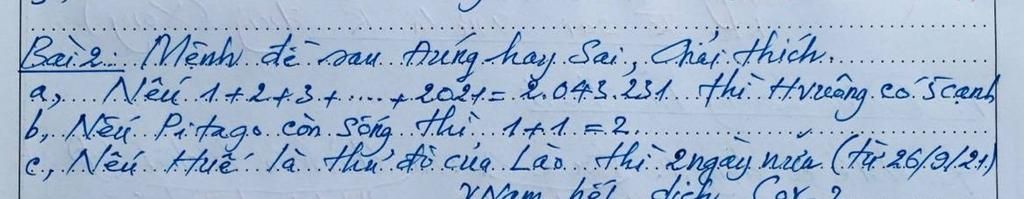 Bài 2: Mệnh đề sau đúng hay Sai, Giải thích.
a, Nếu 1+2+3+.....+2021 = 2.043.231 thì Hvuông có 5 cạnh
b, Nếu Pitago còn sống thì 1+1 = 2.
c, Nếu Huế là thủ đô của Lào thì 2 ngày nữa (từ 26/9/21)
VNam hết dịch Cov 2